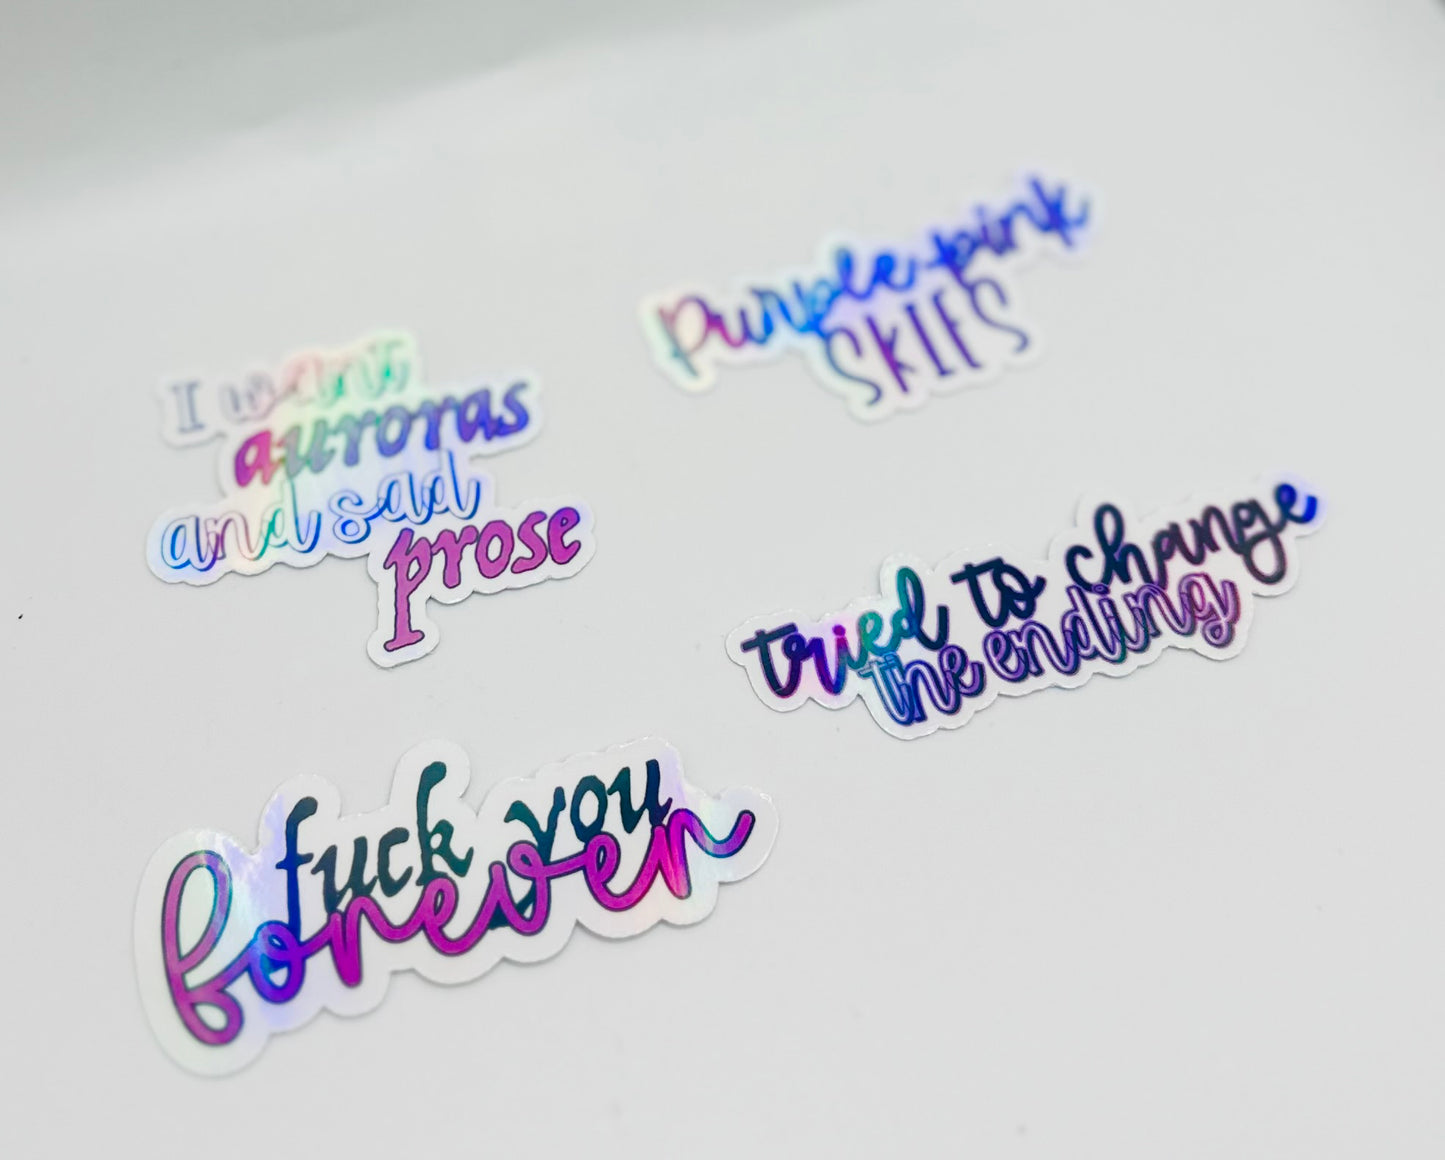 purple-pink
SKIES
I want
auroras
and sad
prose
tried to change
the ending
fuck you
forever